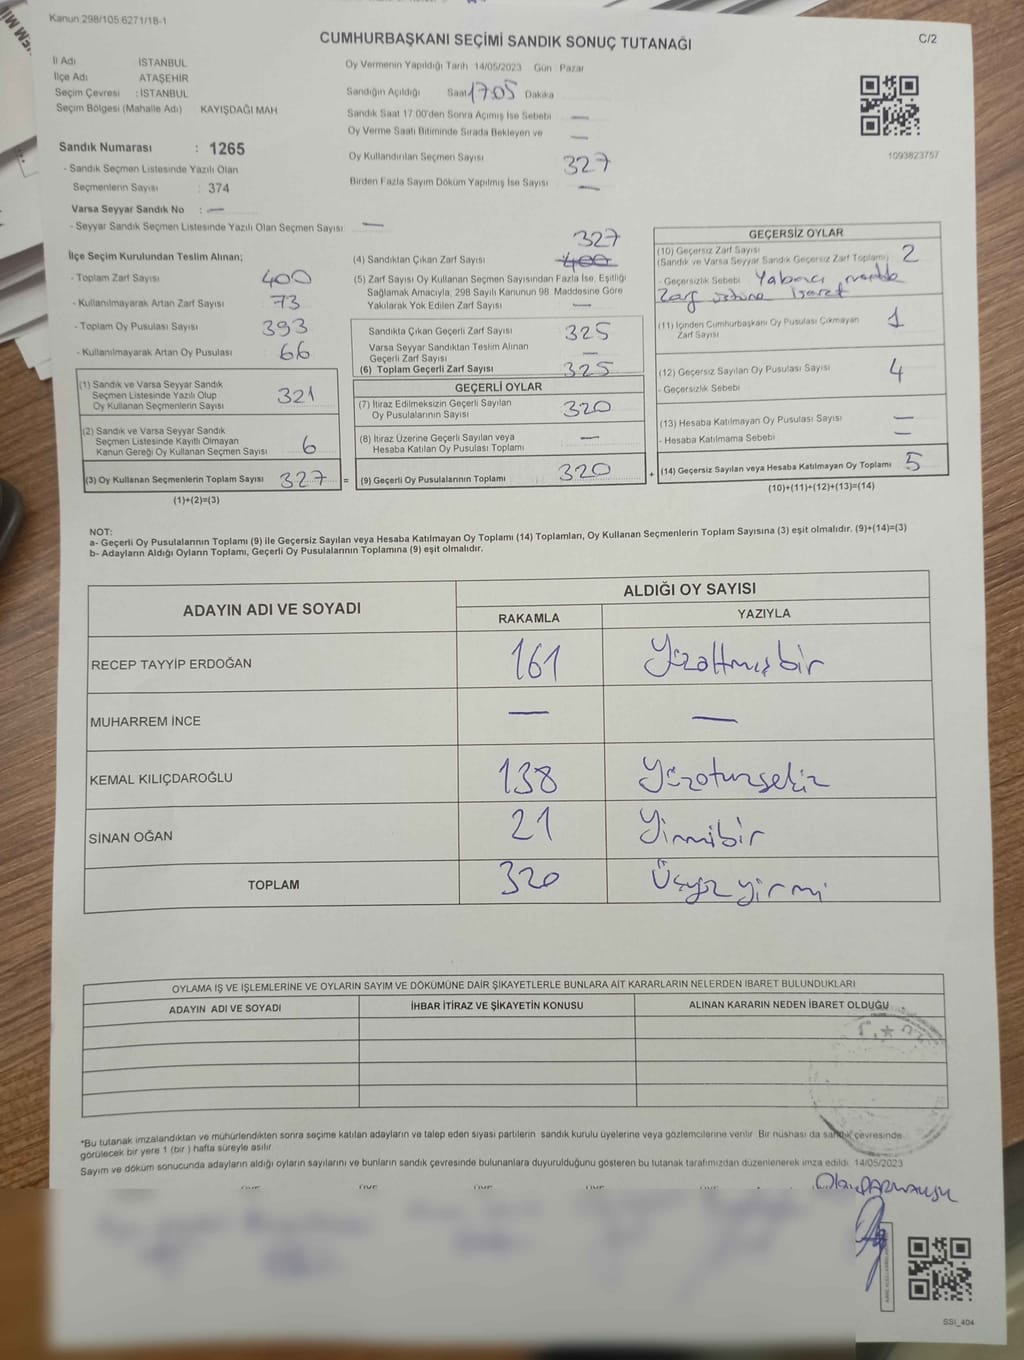 Kanun 298/105 6271/18-1
CUMHURBAŞKANI SEÇİMİ SANDIK SONUÇ TUTANAĞI
C/2
İl Adı İSTANBUL
İlçe Adı ATAŞEHİR
Seçim Çevresi : İSTANBUL
Seçim Bölgesi (Mahalle Adı) KAYIŞDAĞI MAH
Oy Vermenin Yapıldığı Tarih 14/05/2023 Gün : Pazar
Sandığın Açıldığı Saat 1705 Dakika
Sandık Saat 17:00'den Sonra Açımış İse Sebebi —
Oy Verme Saati Bitiminde Sırada Bekleyen ve —
Oy Kullandırılan Seçmen Sayısı 327
Birden Fazla Sayım Döküm Yapılmış İse Sayısı —
1093823757
Sandık Numarası : 1265
- Sandık Seçmen Listesinde Yazılı Olan
Seçmenlerin Sayısı : 374
Varsa Seyyar Sandık No : —
- Seyyar Sandık Seçmen Listesinde Yazılı Olan Seçmen Sayısı —
İlçe Seçim Kurulundan Teslim Alınan;
- Toplam Zarf Sayısı 400
- Kullanılmayarak Artan Zarf Sayısı 73
- Toplam Oy Pusulası Sayısı 393
- Kullanılmayarak Artan Oy Pusulası 66
(1) Sandık ve Varsa Seyyar Sandık
Seçmen Listesinde Yazılı Olup
Oy Kullanan Seçmenlerin Sayısı 321
(2) Sandık ve Varsa Seyyar Sandık
Seçmen Listesinde Kayıtlı Olmayan
Kanun Gereği Oy Kullanan Seçmen Sayısı 6
(3) Oy Kullanan Seçmenlerin Toplam Sayısı 327 =
(1)+(2)=(3)
327
(4) Sandıktan Çıkan Zarf Sayısı 400
(5) Zarf Sayısı Oy Kullanan Seçmen Sayısından Fazla İse, Eşitliği
Sağlamak Amacıyla, 298 Sayılı Kanunun 98. Maddesine Göre
Yakılarak Yok Edilen Zarf Sayısı —
Sandıkta Çıkan Geçerli Zarf Sayısı 325
Varsa Seyyar Sandıktan Teslim Alınan
Geçerli Zarf Sayısı —
(6) Toplam Geçerli Zarf Sayısı 325
GEÇERLİ OYLAR
(7) İtiraz Edilmeksizin Geçerli Sayılan
Oy Pusulalarının Sayısı 320
(8) İtiraz Üzerine Geçerli Sayılan veya
Hesaba Katılan Oy Pusulası Toplamı —
(9) Geçerli Oy Pusulalarının Toplamı 320 +
GEÇERSİZ OYLAR
(10) Geçersiz Zarf Sayısı
(Sandık ve Varsa Seyyar Sandık Geçersiz Zarf Toplamı) 2
- Geçersizlik Sebebi Yabancı
Zarf üstüne işaret
(11) İçinden Cumhurbaşkanı Oy Pusulası Çıkmayan
Zarf Sayısı 1
(12) Geçersiz Sayılan Oy Pusulası Sayısı 4
- Geçersizlik Sebebi
(13) Hesaba Katılmayan Oy Pusulası Sayısı —
- Hesaba Katılmama Sebebi —
(14) Geçersiz Sayılan veya Hesaba Katılmayan Oy Toplamı 5
(10)+(11)+(12)+(13)=(14)
NOT:
a- Geçerli Oy Pusulalarının Toplamı (9) ile Geçersiz Sayılan veya Hesaba Katılmayan Oy Toplamı (14) Toplamları, Oy Kullanan Seçmenlerin Toplam Sayısına (3) eşit olmalıdır. (9)+(14)=(3)
b- Adayların Aldığı Oyların Toplamı, Geçerli Oy Pusulalarının Toplamına (9) eşit olmalıdır.
ADAYIN ADI VE SOYADI
ALDIĞI OY SAYISI
RAKAMLA YAZIYLA
RECEP TAYYİP ERDOĞAN 161 Yüzaltmışbir
MUHARREM İNCE — —
KEMAL KILIÇDAROĞLU 138 Yüzotuzsekiz
SİNAN OĞAN 21 Yirmibir
TOPLAM 320 Üçyüzyirmi
OYLAMA İŞ VE İŞLEMLERİNE VE OYLARIN SAYIM VE DÖKÜMÜNE DAİR ŞİKAYETLERLE BUNLARA AİT KARARLARIN NELERDEN İBARET BULUNDUKLARI
ADAYIN ADI VE SOYADI İHBAR İTİRAZ VE ŞİKAYETİN KONUSU ALINAN KARARIN NEDEN İBARET OLDUĞU
*Bu tutanak imzalandıktan ve mühürlendikten sonra seçime katılan adayların ve talep eden siyasi partilerin sandık kurulu üyelerine veya gözlemcilerine verilir. Bir nüshası da sandık çevresinde
görülecek bir yere 1 (bir ) hafta süreyle asılır.
Sayım ve döküm sonucunda adayların aldığı oyların sayılarını ve bunların sandık çevresinde bulunanlara duyurulduğunu gösteren bu tutanak tarafımızdan düzenlenerek imza edildi. 14/05/2023
SSI_404